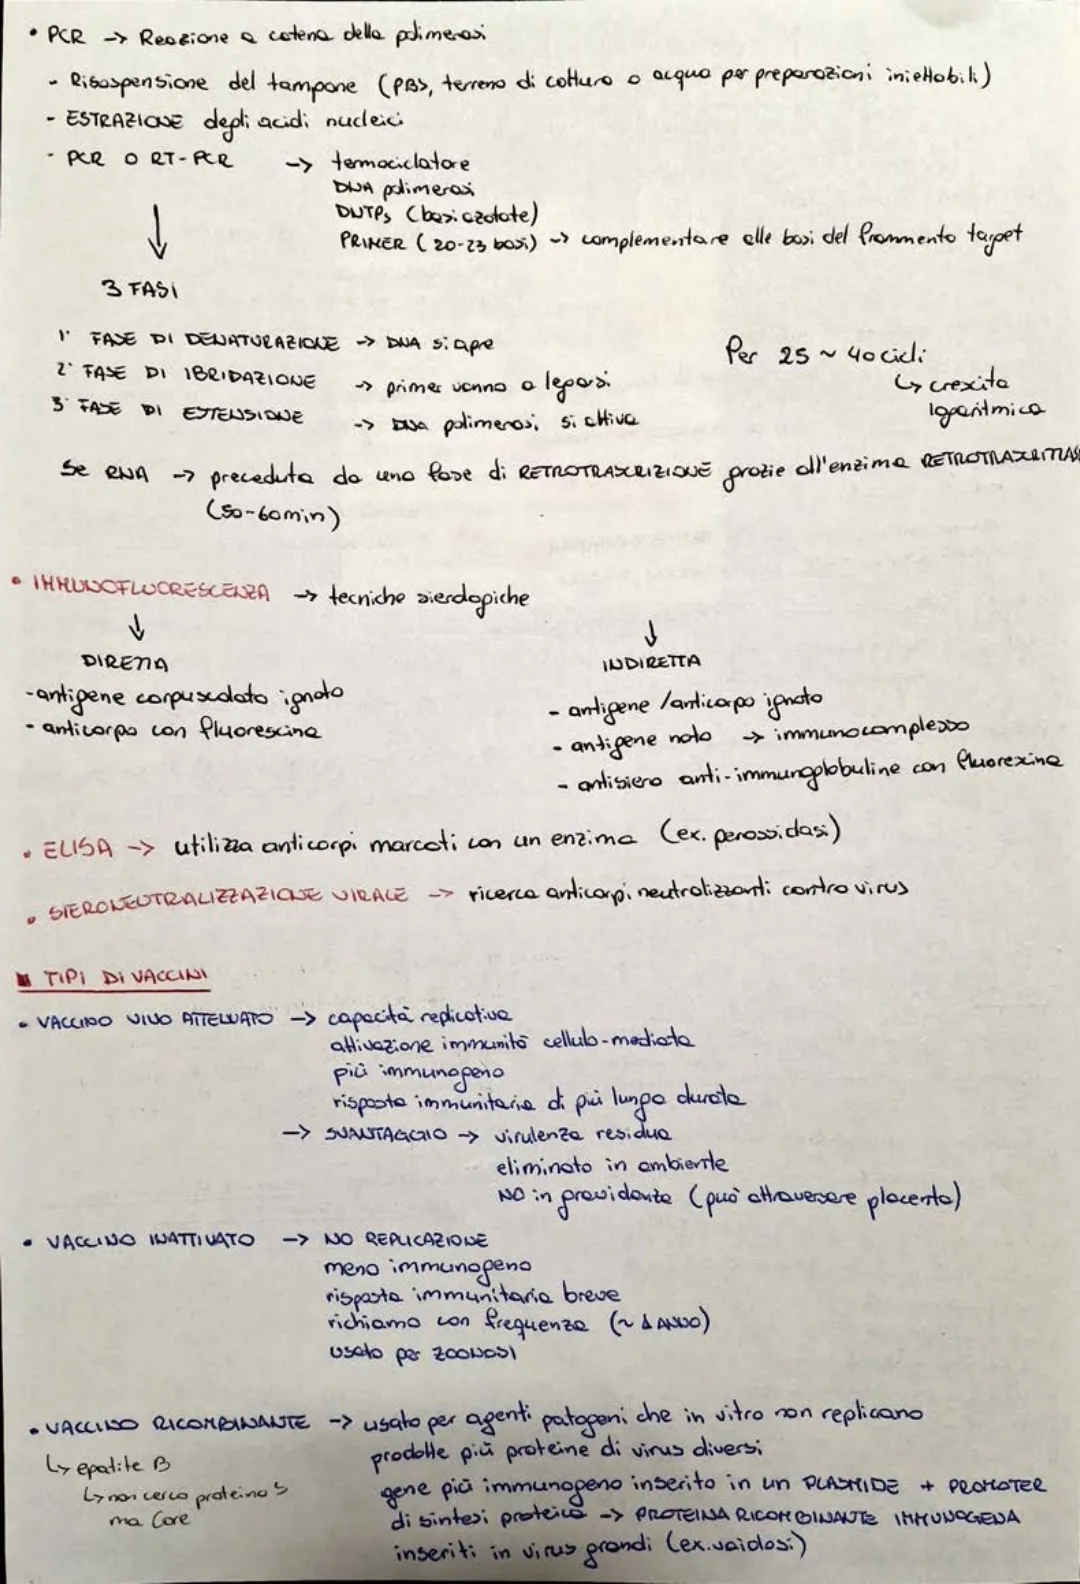 • PCR → Reazione a catena della polimerasi
- Risospensione del tampone (PBS, terreno di coltura o acqua per preparazioni iniettabili)
- ESTRAZIONE degli acidi nucleici
- PCR O RT-PCR → termociclatore
DNA polimerasi
DNTPs (basi azotate)
PRIMER (20-23 basi) → complementare alle basi del frammento target
↓
3 FASI
1° FASE DI DENATURAZIONE → DNA si apre
2° FASE DI IBRIDAZIONE → primer vanno a legarsi
3° FASE DI ESTENSIONE → DNA polimerasi si attiva
Per 25 ~ 40 cicli
↳ crescita
logaritmica
Se RNA → preceduta da una fase di RETROTRASCRIZIONE grazie all'enzima RETROTRASCRITTAS
(50-60min)
• IMMUNOFLUORESCENZA → tecniche sierologiche
↓ ↓
DIRETTA INDIRETTA
- antigene corpuscolato ignoto
- anticorpo con fluorescina
- antigene /anticorpo ignoto
- antigene noto → immunocomplesso
- antisiero anti-immunoglobuline con fluorescina
• ELISA → utilizza anticorpi marcati con un enzima (ex. perossidasi)
• SIERONEUTRALIZZAZIONE VIRALE → ricerca anticorpi neutralizzanti contro virus
■ TIPI DI VACCINI
• VACCINO VIVO ATTENUATO → capacità replicativa
attivazione immunità cellulo-mediata
più immunogeno
risposta immunitaria di più lunga durata
→ SVANTAGGIO → virulenza residua
eliminato in ambiente
NO in gravidanza (può attraversare placenta)
• VACCINO INATTIVATO → NO REPLICAZIONE
meno immunogeno
risposta immunitaria breve
richiamo con frequenza (~ 1 ANNO)
usato per ZOONOSI
• VACCINO RICOMBINANTE → usato per agenti patogeni che in vitro non replicano
↳ epatite B
↳ non cerco proteina S
ma Core
prodotte più proteine di virus diversi
gene più immunogeno inserito in un PLASMIDE + PROMOTER
di sintesi proteica → PROTEINA RICOMBINANTE IMMUNOGENA
inseriti in virus grandi (ex. vaiolosi)